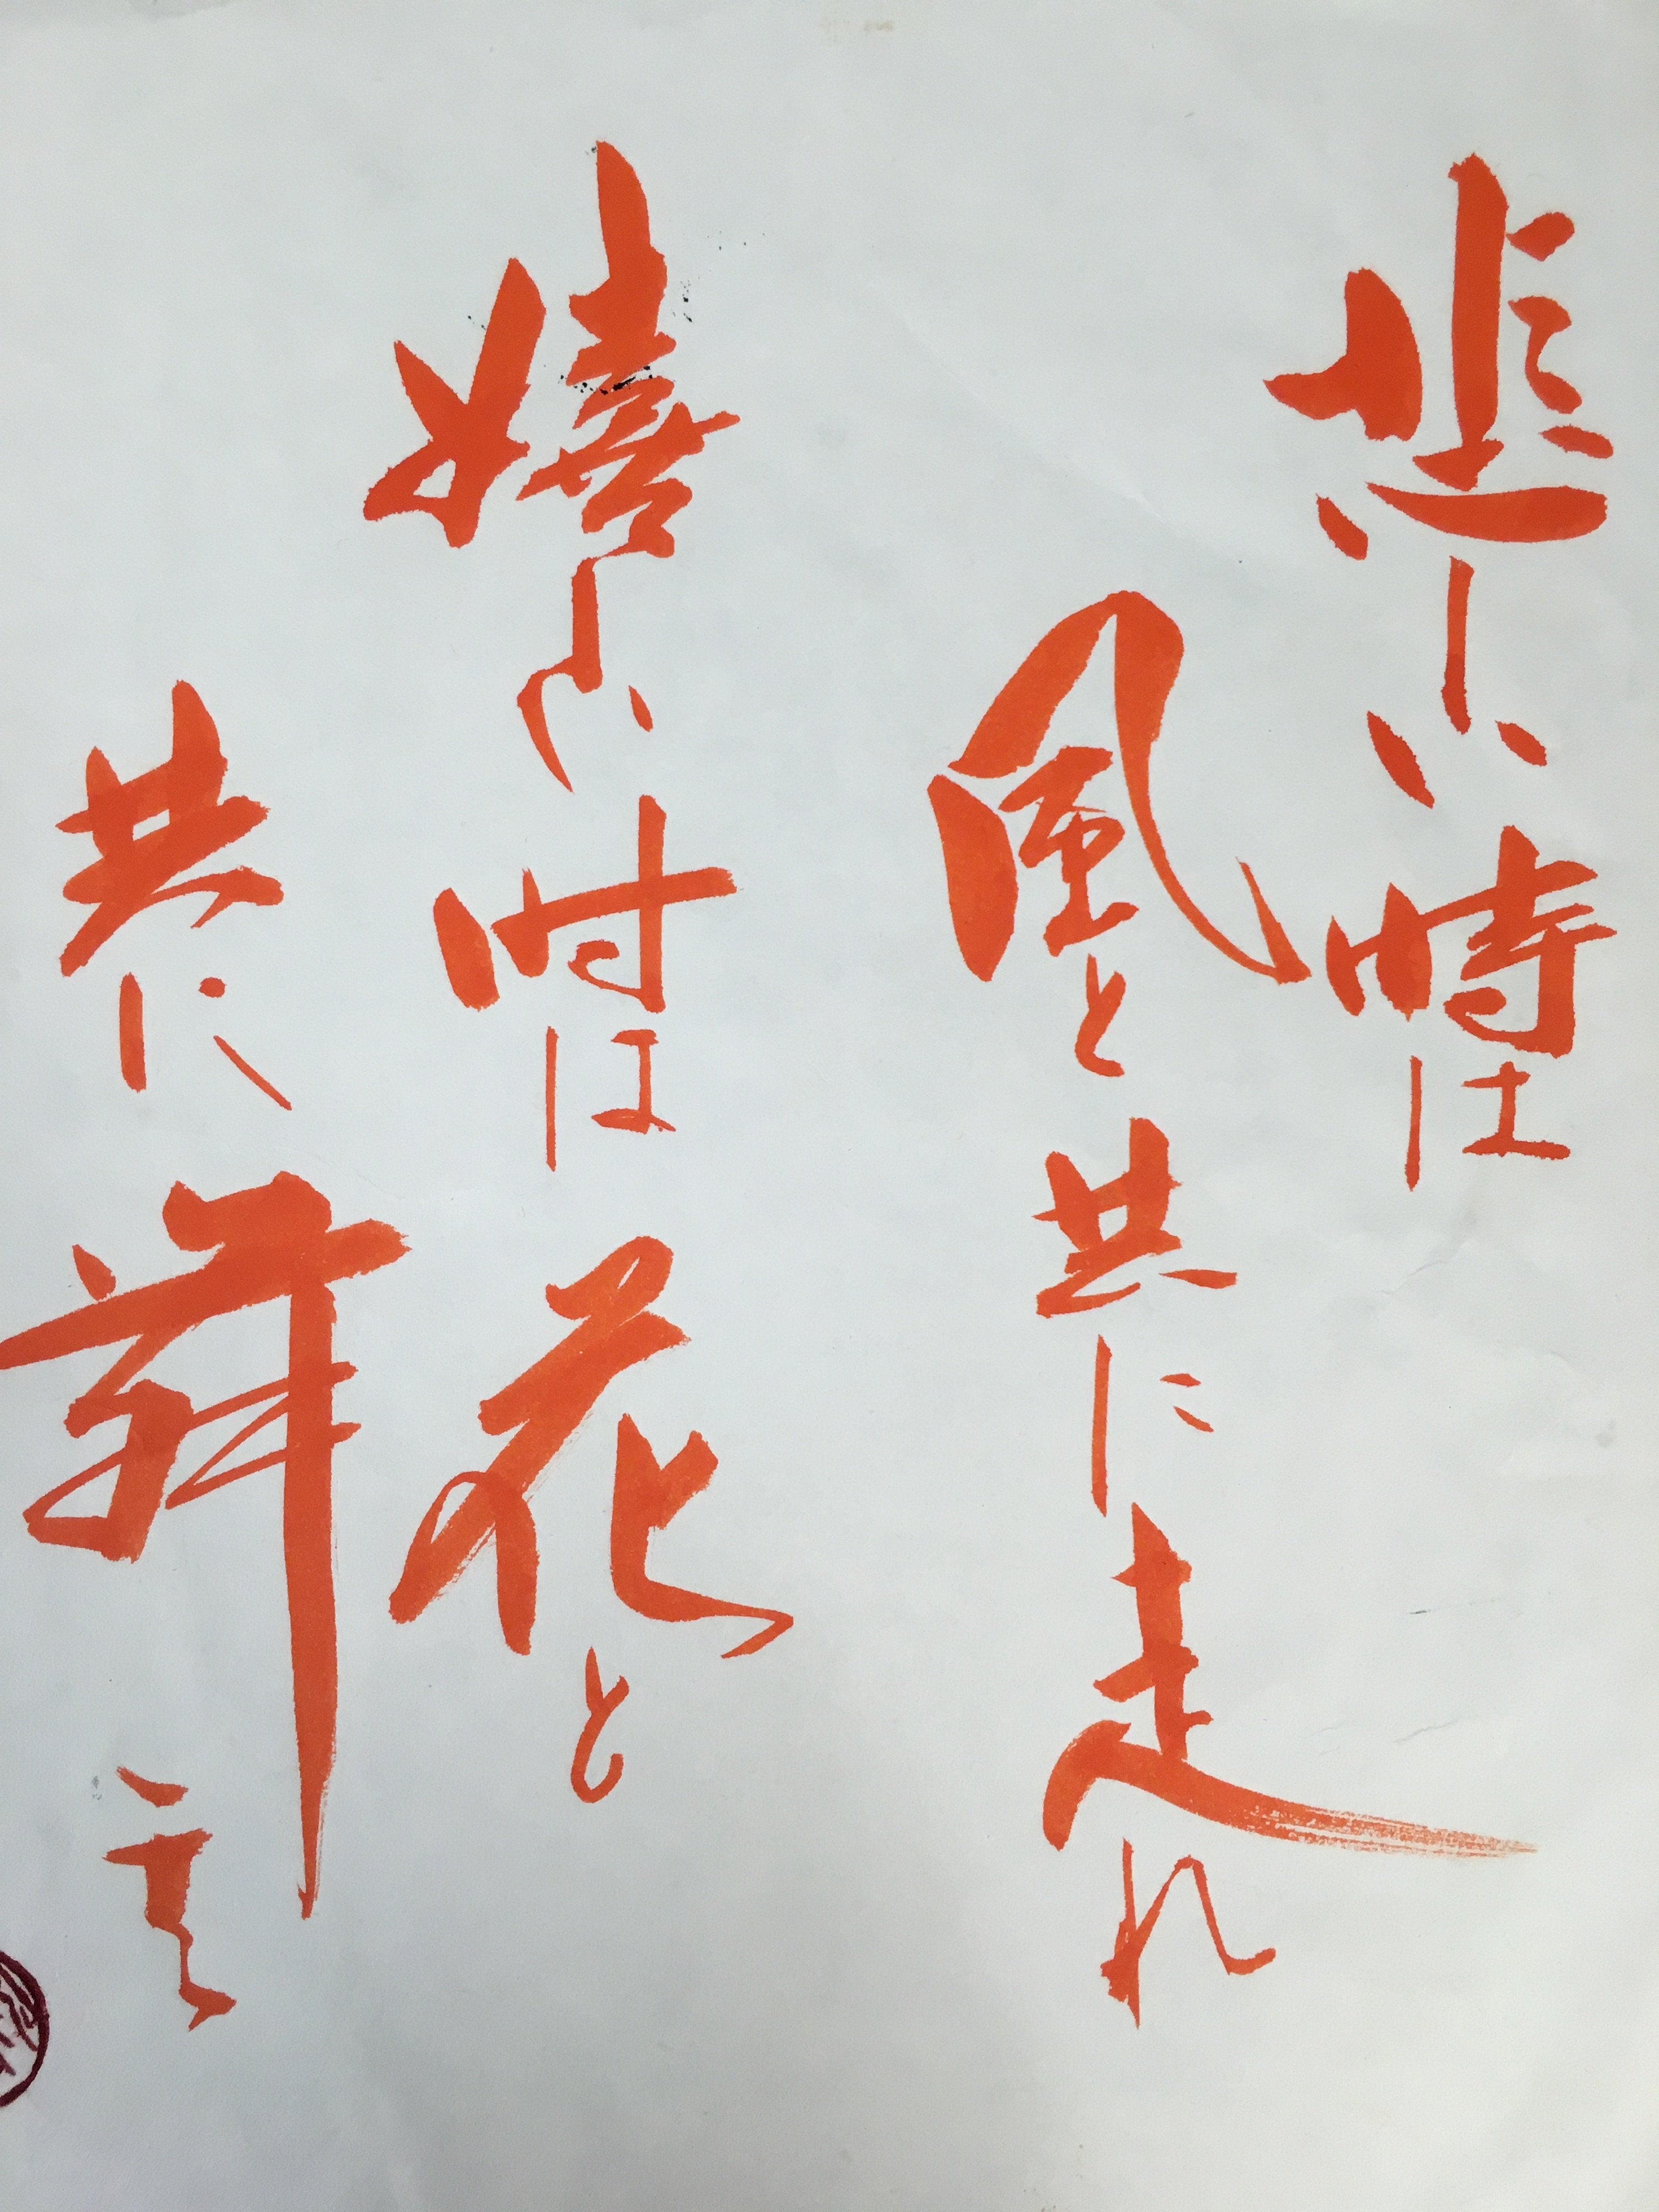 悲しい時は
風と共に走れ
嬉しい時は花と
共に舞え